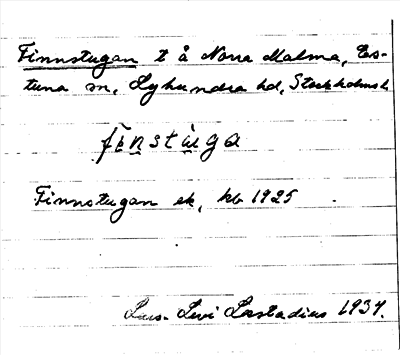 Finnstugan t å Norra Malma, Es-
tuna sn, Lyhundra hd, Stockholms l.
fìnstùga
Finnstugan ek, kb 1925
Lars-Levi Læstadius 1937.